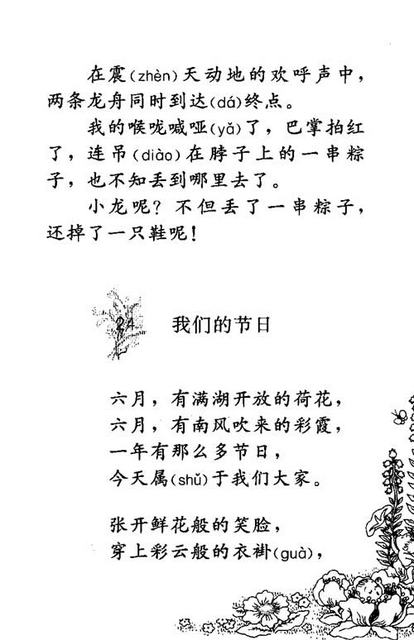 在震(zhèn)天动地的欢呼声中，
两条龙舟同时到达(dá)终点。
我的喉咙喊哑(yǎ)了，巴掌拍红
了，连吊(diào)在脖子上的一串粽
子，也不知丢到哪里去了。
小龙呢？不但丢了一串粽子，
还掉了一只鞋呢！
24 我们的节日
六月，有满湖开放的荷花，
六月，有南风吹来的彩霞，
一年有那么多节日，
今天属(shǔ)于我们大家。
张开鲜花般的笑脸，
穿上彩云般的衣褂(guà)，